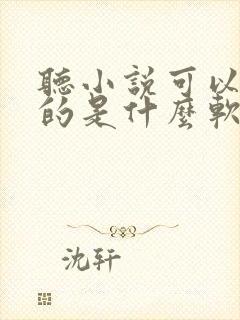 聽小說可以
的是什麼軟
沈轩